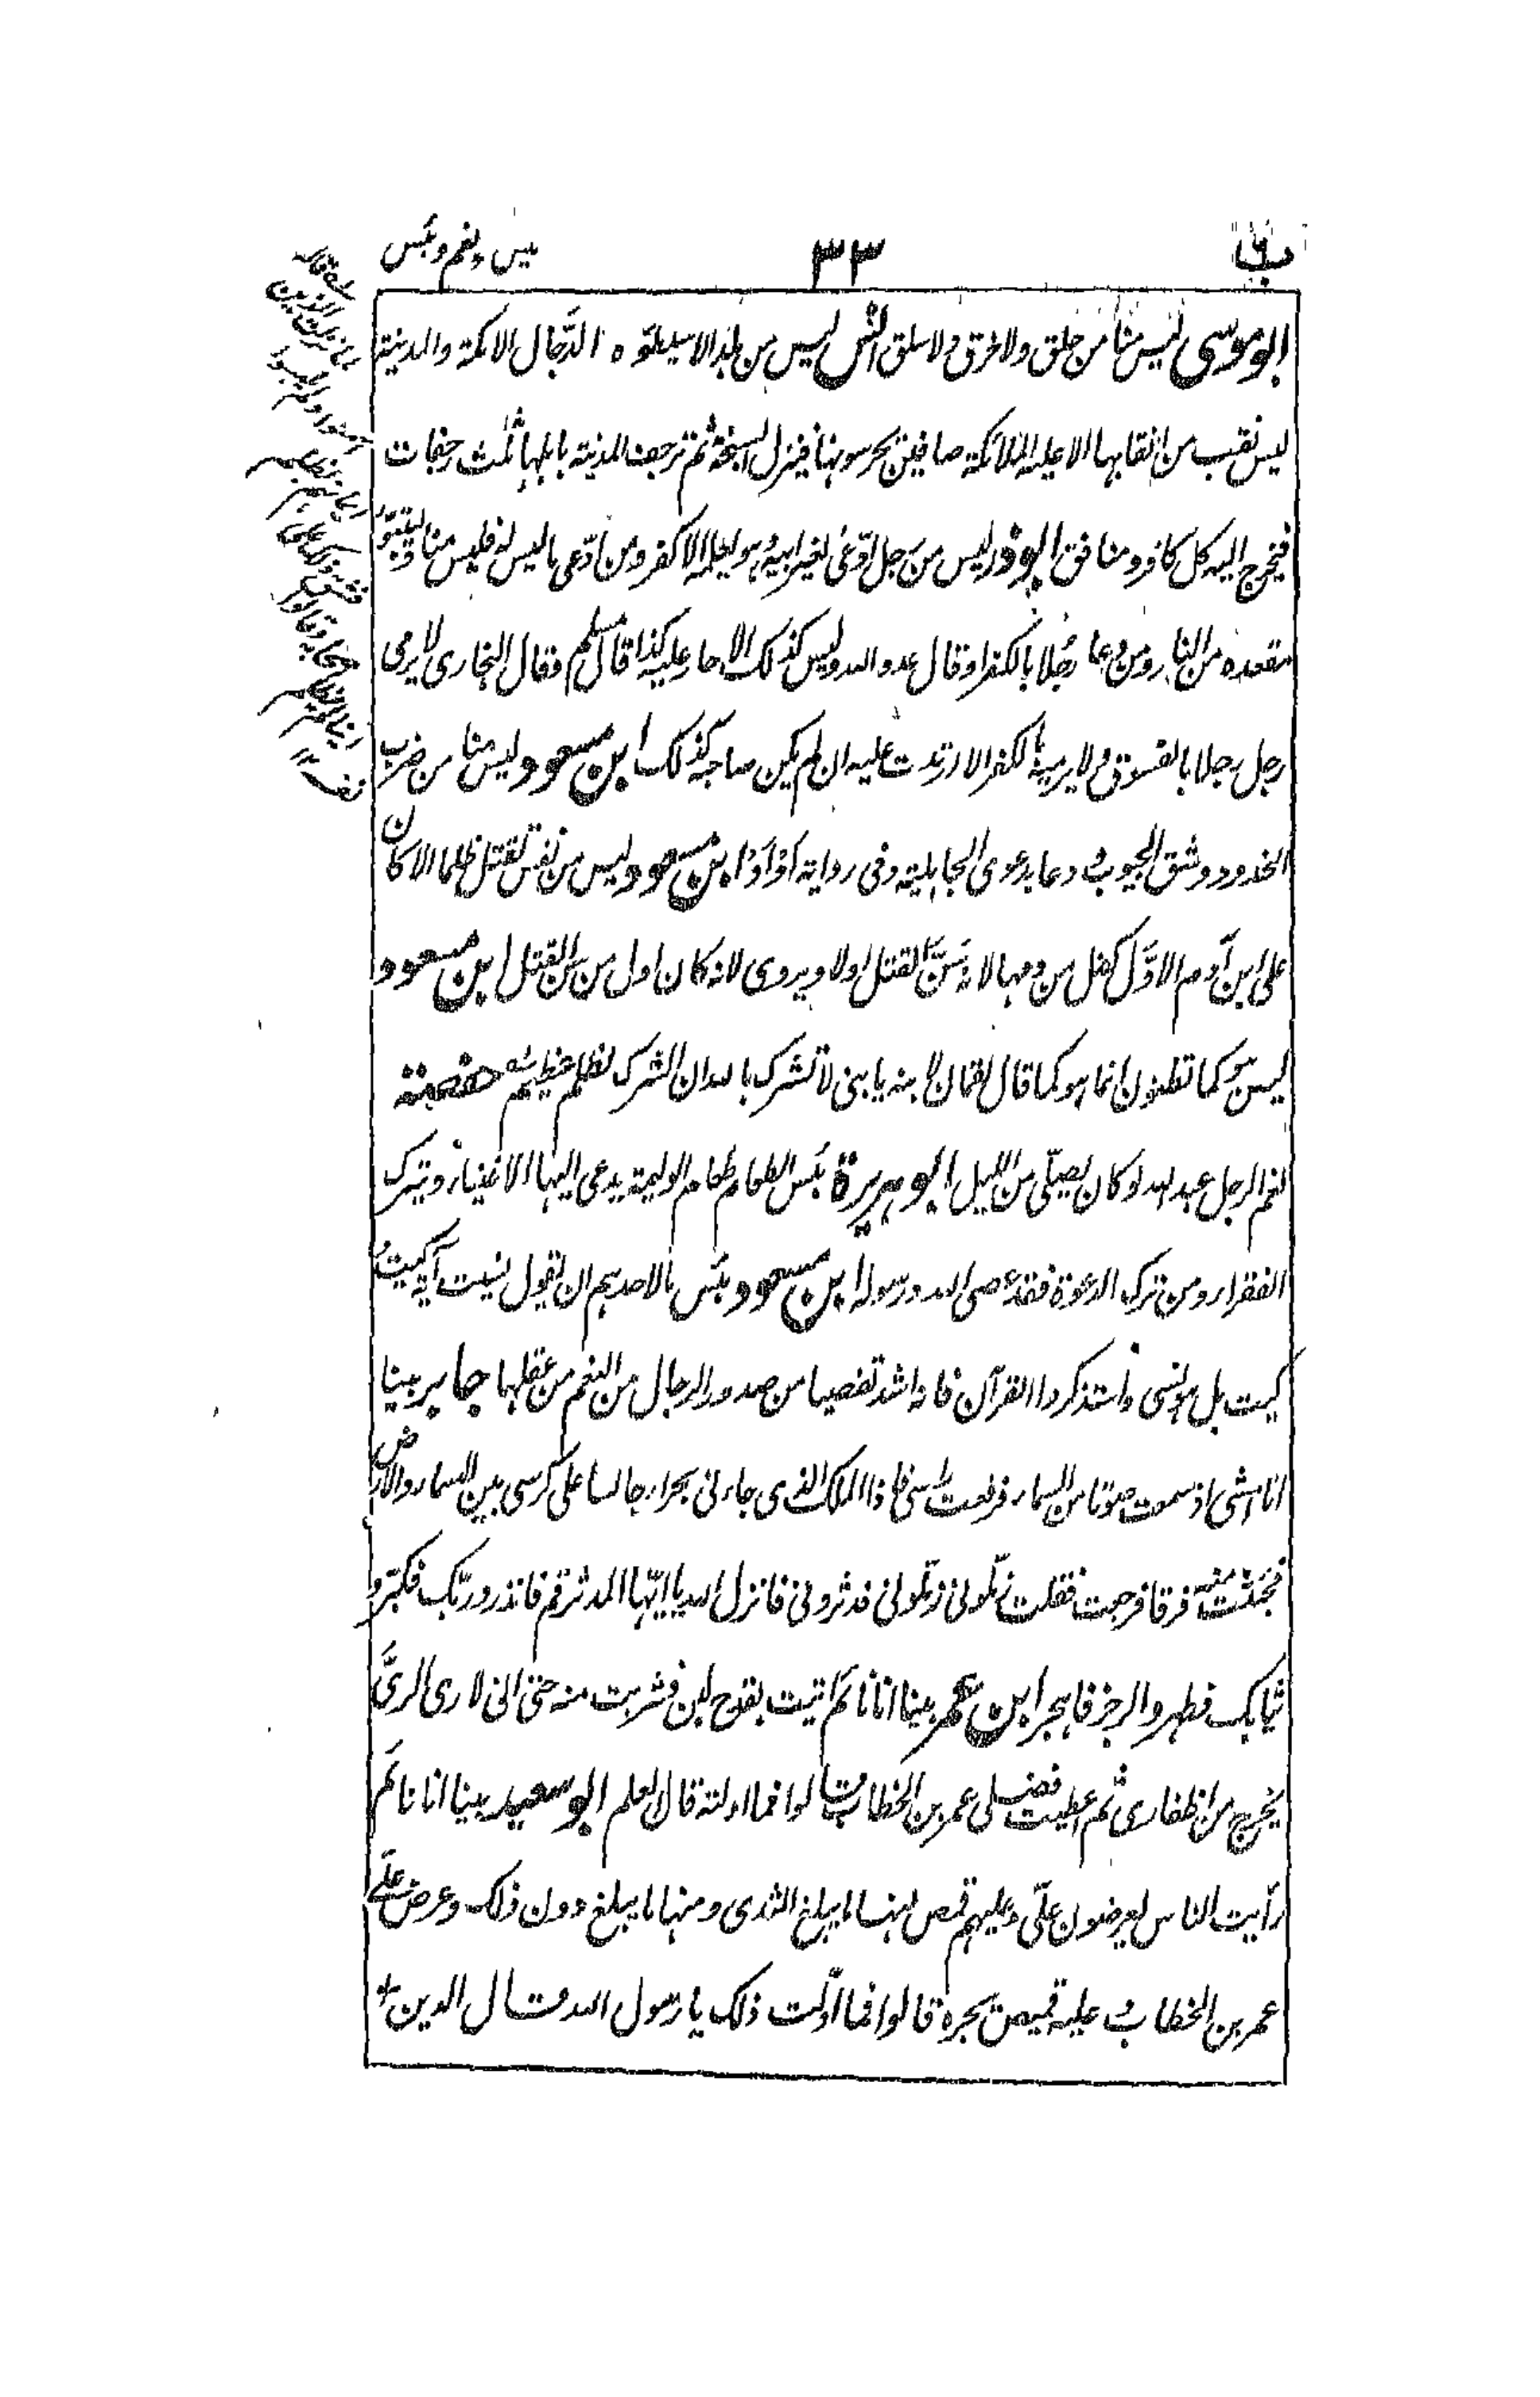 ب٦ ٣٣ ليس ونعم وبئس
ابو موسى ليس منا من حلق ولا خرق ولا سلق انس ليس من بلد الا سيطؤه الدَّجّال الا مكة والمدينة
ليس نقب من انقابها الا عليه الملائكة صافين يحرسونها فينزل السبخة ثم ترجف المدينة باهلها ثلث رجفات
فيخرج اليه كل كافر ومنافق ابو ذر ليس من رجل ادّعى لغير ابيه وهو يعلمه الا كفر ومن ادّعى ما ليس له فليس منا وليتبوّأ
مقعده من النار ومن دعا رجُلا بالكفر او قال عدو الله وليس كذلك الا حار عليه كذا قال مسلم وقال البخارى لا يرمى
رجل رجلا بالفسوق ولا يرميه بالكفر الا ارتدت عليه ان لم يكن صاحبه كذلك ابن مسعود ليس منا من ضرب
الخدود وشق الجيوب ودعا بدعوى الجاهلية وفى رواية اوْ اوْ ابن مسعود ليس من نفس تقتل ظلما الا كان
على ابن آدم الاوّل كفل من دمها لانه سَنَّ القتل اولا ويروى لانه كان اول من سن القتل ابن مسعود
ليس هو كما تظنون انما هو كما قال لقمان لابنه يا بنى لا تشرك بالله ان الشرك لظلم عظيم حفصة
نعم الرجل عبد الله لو كان يصلّى من الليل ابو هريرة بئس الطعام طعام الوليمة يدعى اليها الاغنياء ويترك
الفقراء ومن ترك الدعوة فقد عصى الله ورسوله ابن مسعود بئس ما لاحدهم ان يقول نسيت آية كيت
كيت بل هو نسى واستذكروا القرآن فانه اشد تفصيا من صدور الرجال من النعم من عقلها جابر بينا
انا امشى اذ سمعت صوتا من السماء فرفعت راسى فاذا الملك الذى جاءنى بحراء جالسا على كرسى بين السماء والارض
فجئثت منه فرقا فرجعت فقلت زمّلونى زمّلونى فدثرونى فانزل الله يا ايّها المدثر قم فانذر وربّك فكبّر و
ثيابك فطهر والرجز فاهجر ابن عمر بينا انا نائم اتيت بقدح لبن فشربت منه حتى انى لارى الرىَّ
يخرج من اظفارى ثم اعطيت فضلى عمر بن الخطاب قالوا فما اولته قال العلم ابو سعيد بينا انا نائم
رأيت الناس يعرضون علىّ وعليهم قمص منها ما يبلغ الثدى ومنها ما يبلغ دون ذلك وعرض علىَّ
عمر بن الخطاب وعليه قميص يجره قالوا فما اوّلت ذلك يا رسول الله قال الدين